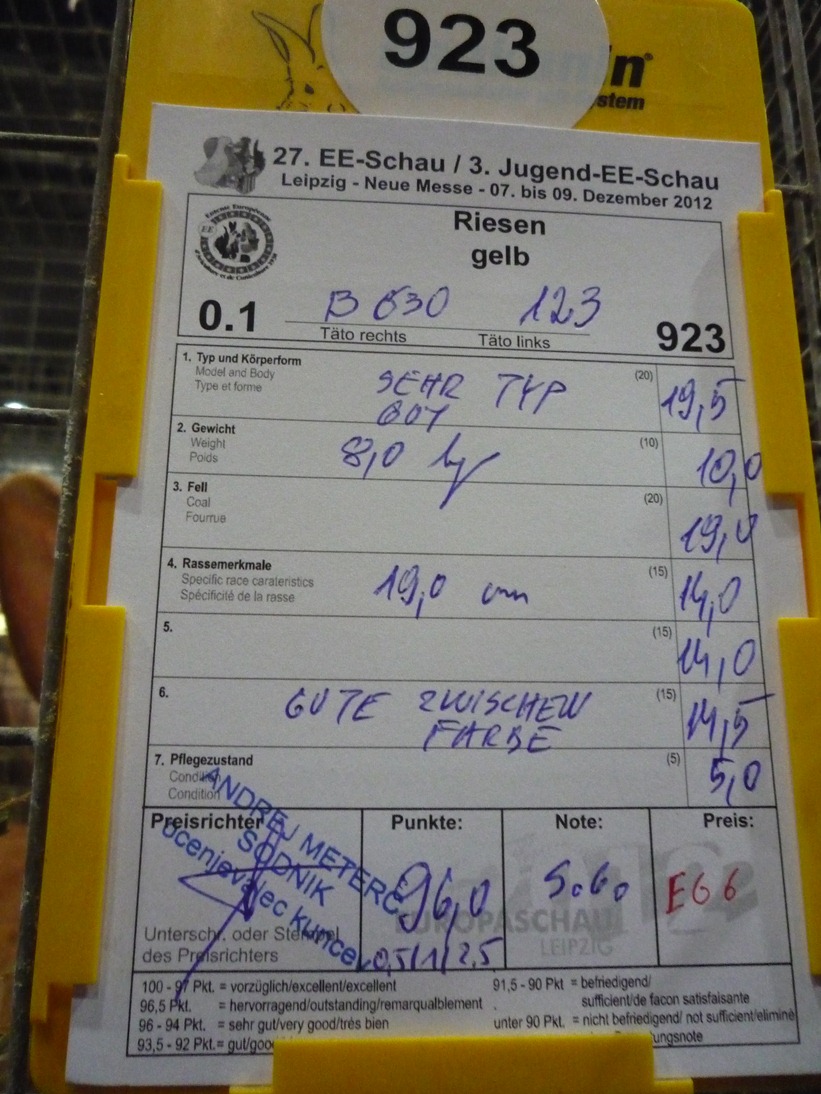 923
n®
stem
27. EE-Schau / 3. Jugend-EE-Schau
Leipzig - Neue Messe - 07. bis 09. Dezember 2012
Riesen
gelb
EE
0.1 B 630 123 923
Täto rechts Täto links
1. Typ und Körperform (20)
Model and Body
Type et forme
SEHR TYP 19,5
GUT
2. Gewicht (10)
Weight
Poids
8,0 kg 10,0
3. Fell (20)
Coal
Fourrue
19,0
4. Rassemerkmale (15)
Specific race carateristics
Spécificité de la rasse
19,0 cm 14,0
5. (15)
14,0
6. (15)
GUTE ZWISCHEN 14,5
FARBE
7. Pflegezustand (5)
Condition
Condition
5,0
Preisrichter Punkte: Note: Preis:
ANDREJ METERC
SODNIK
ocenjevalec kuncev
96,0 S.G. EG 6
0,5/1/2,5
EUROPASCHAU
LEIPZIG
Unterschr. oder Stempel
des Preisrichters
100 - 97 Pkt. = vorzüglich/excellent/excellent
96,5 Pkt. = hervorragend/outstanding/remarqualblement
96 - 94 Pkt. = sehr gut/very good/très bien
93,5 - 92 Pkt.= gut/goo
91,5 - 90 Pkt = befriedigend/
sufficient/de facon satisfaisante
unter 90 Pkt. = nicht befriedigend/ not sufficient/eliminé
ungsnote